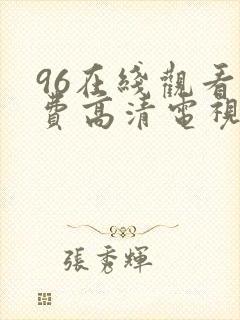 96在綫觀看
費高清電視
張秀輝